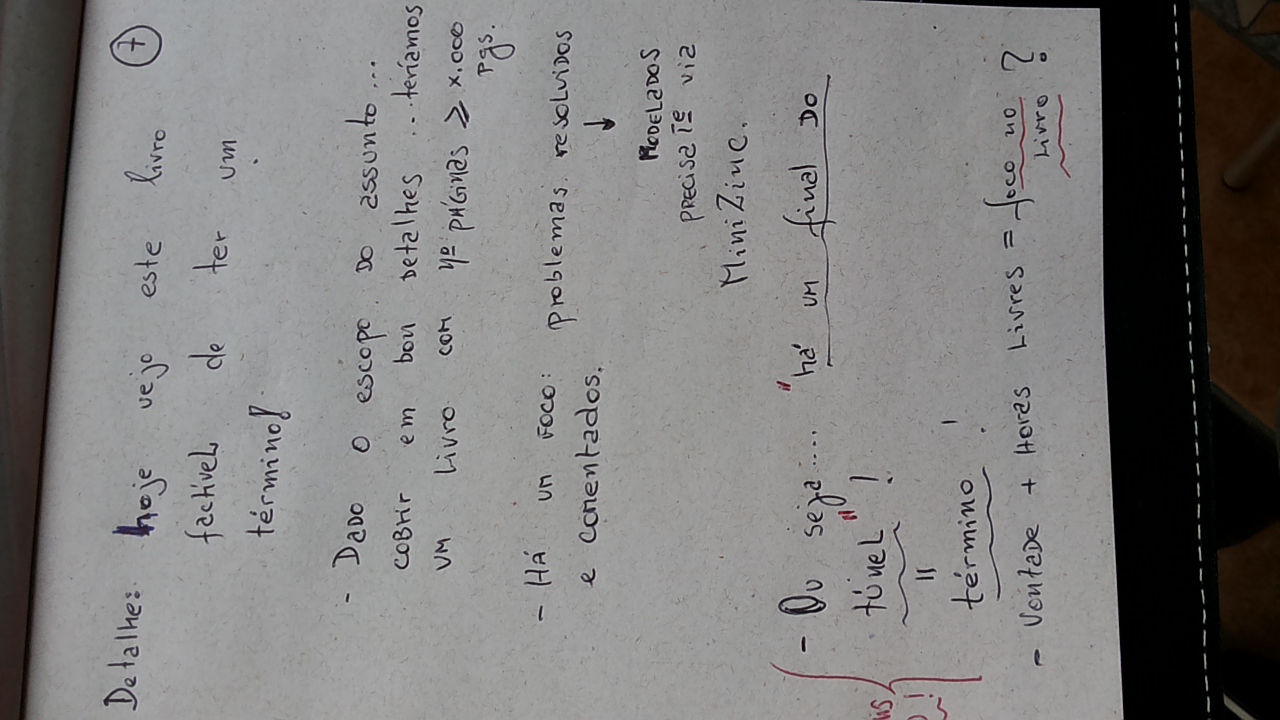 Detalhe: hoje vejo este livro 7
factível de ter um
término!
- DADO O escopo DO assunto...
COBRIR em bom DETALHES .. teríamos
UM LIVRO COM Nº PÁGINAS ≥ X.000
pgs.
- HÁ UM FOCO: problemas resolvidos
e comentados. ↓
MODELADOS
PRECISATE VIA
MiniZinc.
- Ou seja.... "há um final DO
túnel"!
"
término!
- VONTADE + HORAS LIVRES = foco no ?
LIVRO